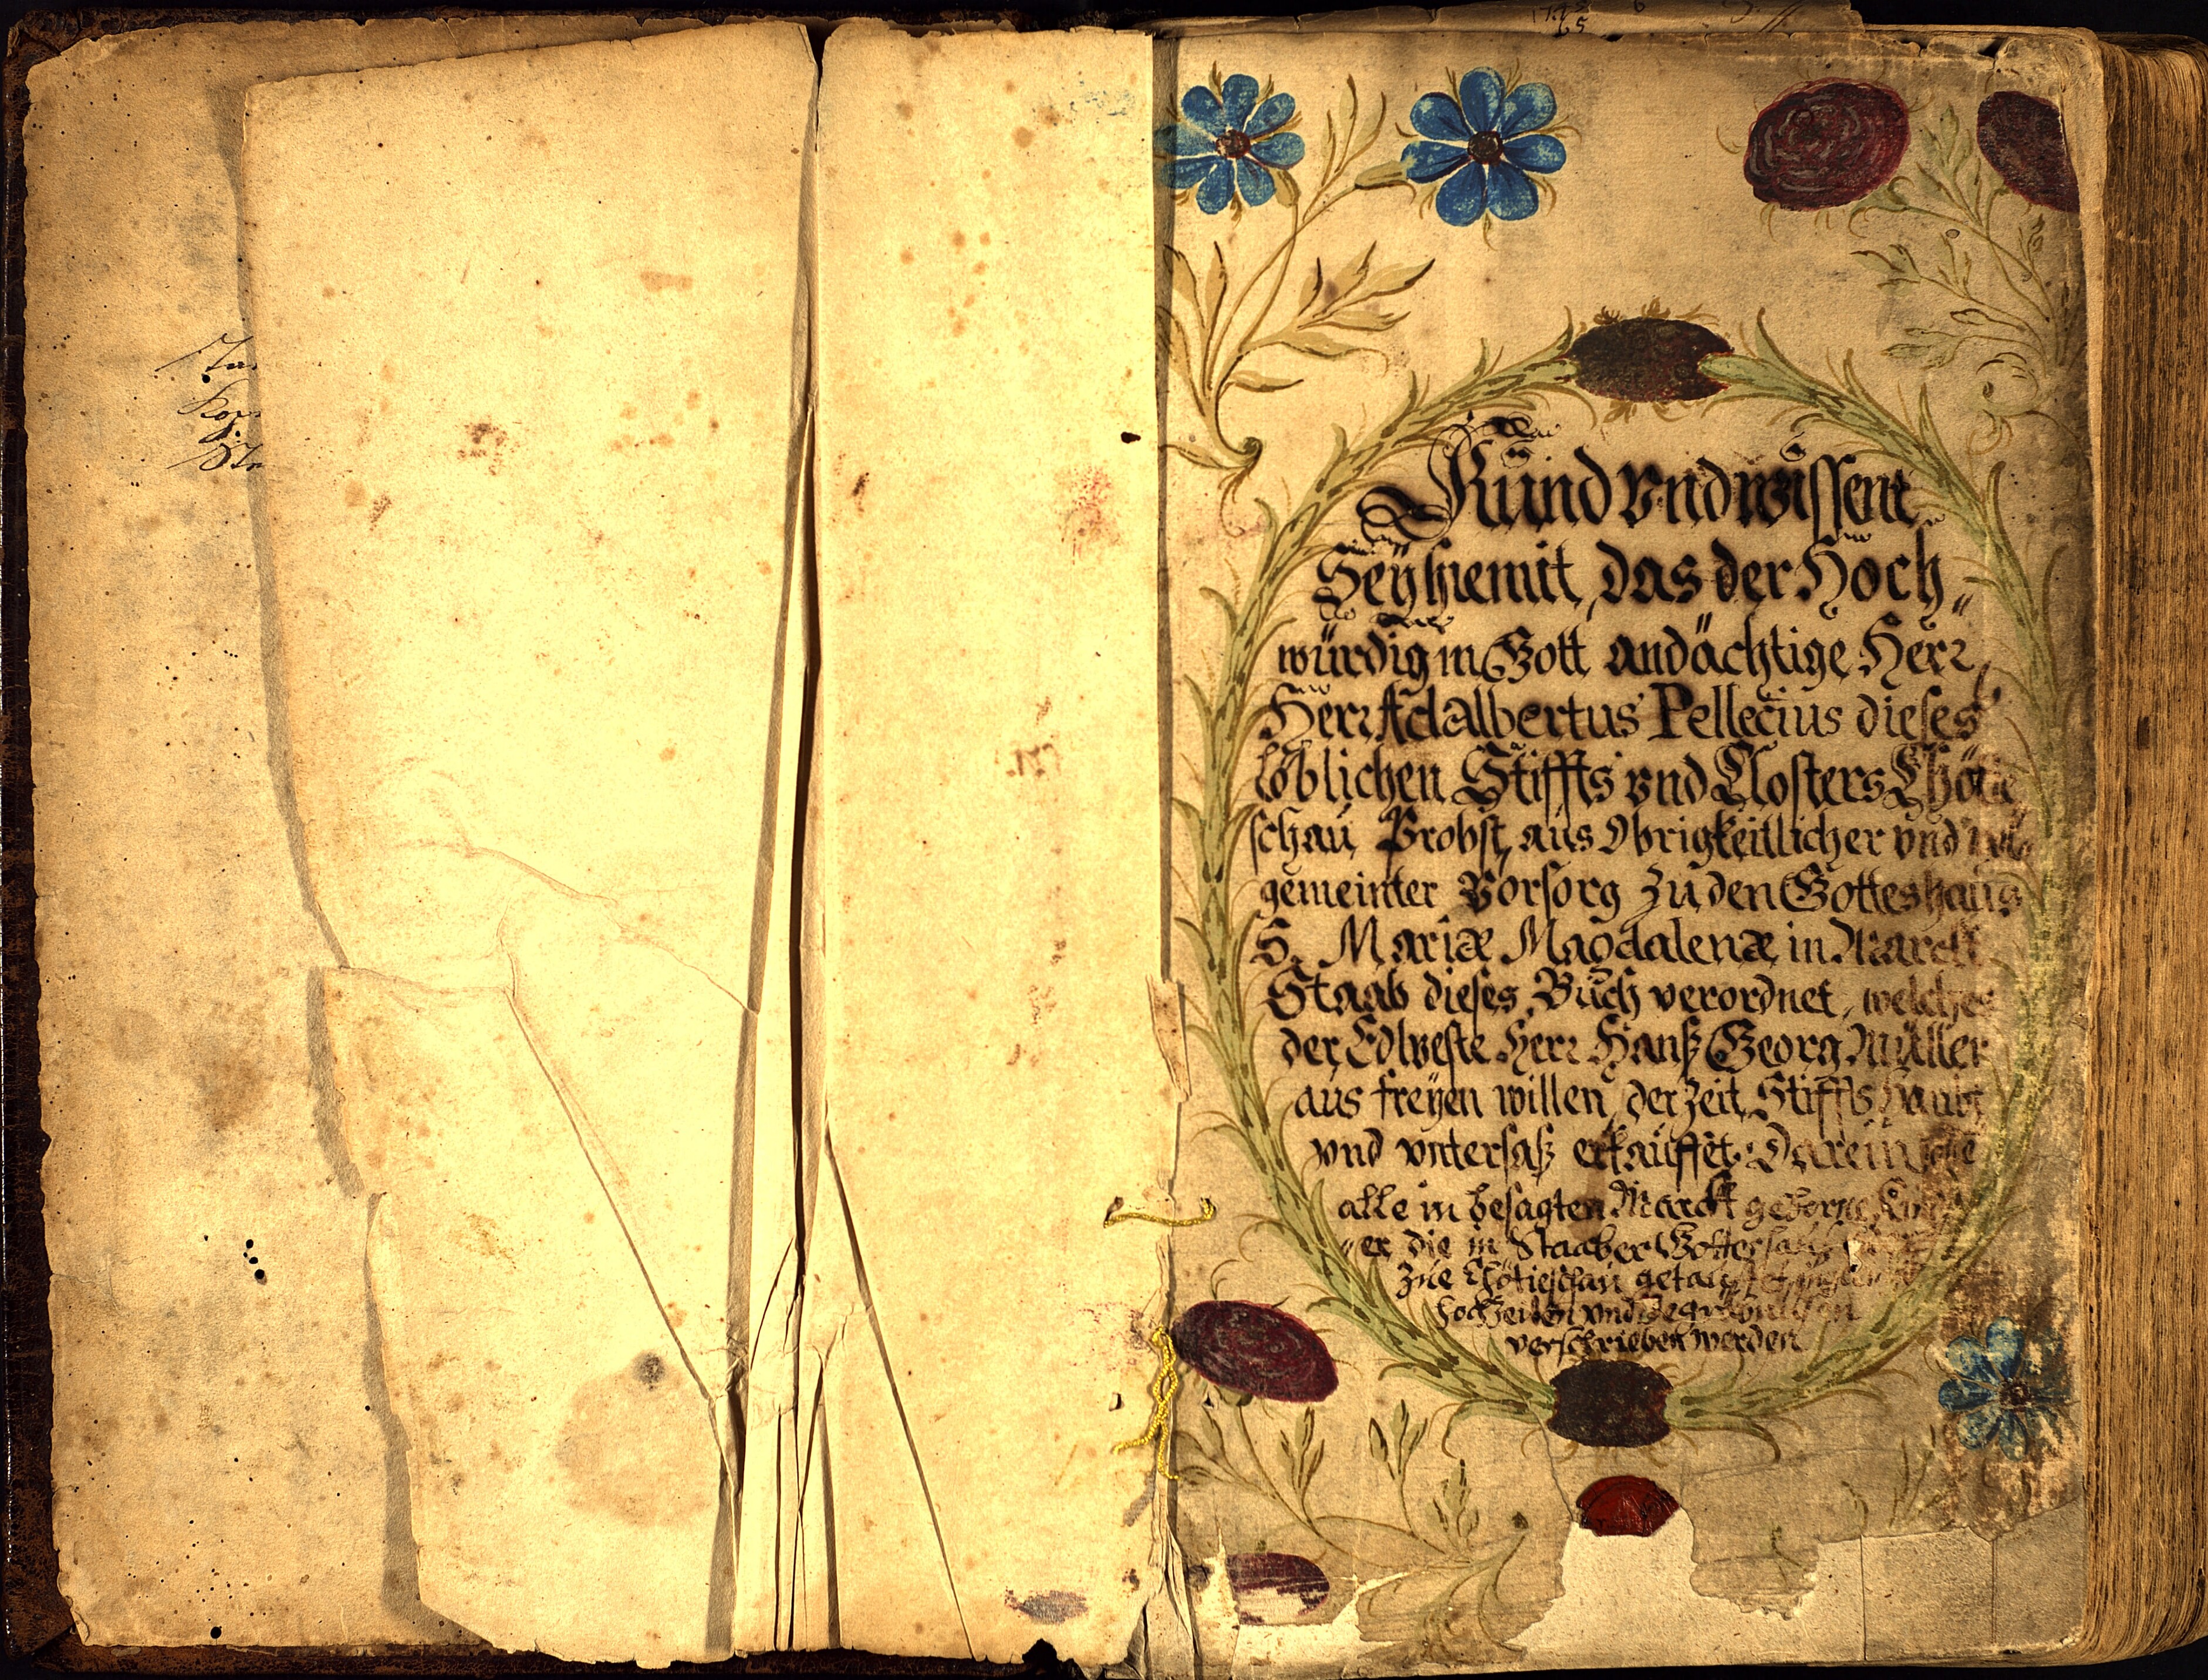 Kund vnd wissent
Seÿ hiemit, das der Hoch„
würdig in Gott andächtige Herr,
Herr Adalbertus Pellecius dieses
löblichen Stiffts vnd Closters Chotie
schau Probst, aus Obrigkeitlicher vnd
gemeinter Vorsorg zu den Gotteshaus
S. Mariæ Magdalenæ in Marckt
Staab dieses Buch verordnet, welches
der Edlveste Herr Hanß Georg Müller
aus freÿen willen, der zeit Stiffts
vnd vntersaß erkauffet. Darein
alle in besagten Marckt geborne Kind
„er die in Staaber Gotteshaus
zue Chotieschau getauffet
hochzeiten vnd Begräbnussen
verschrieben werden